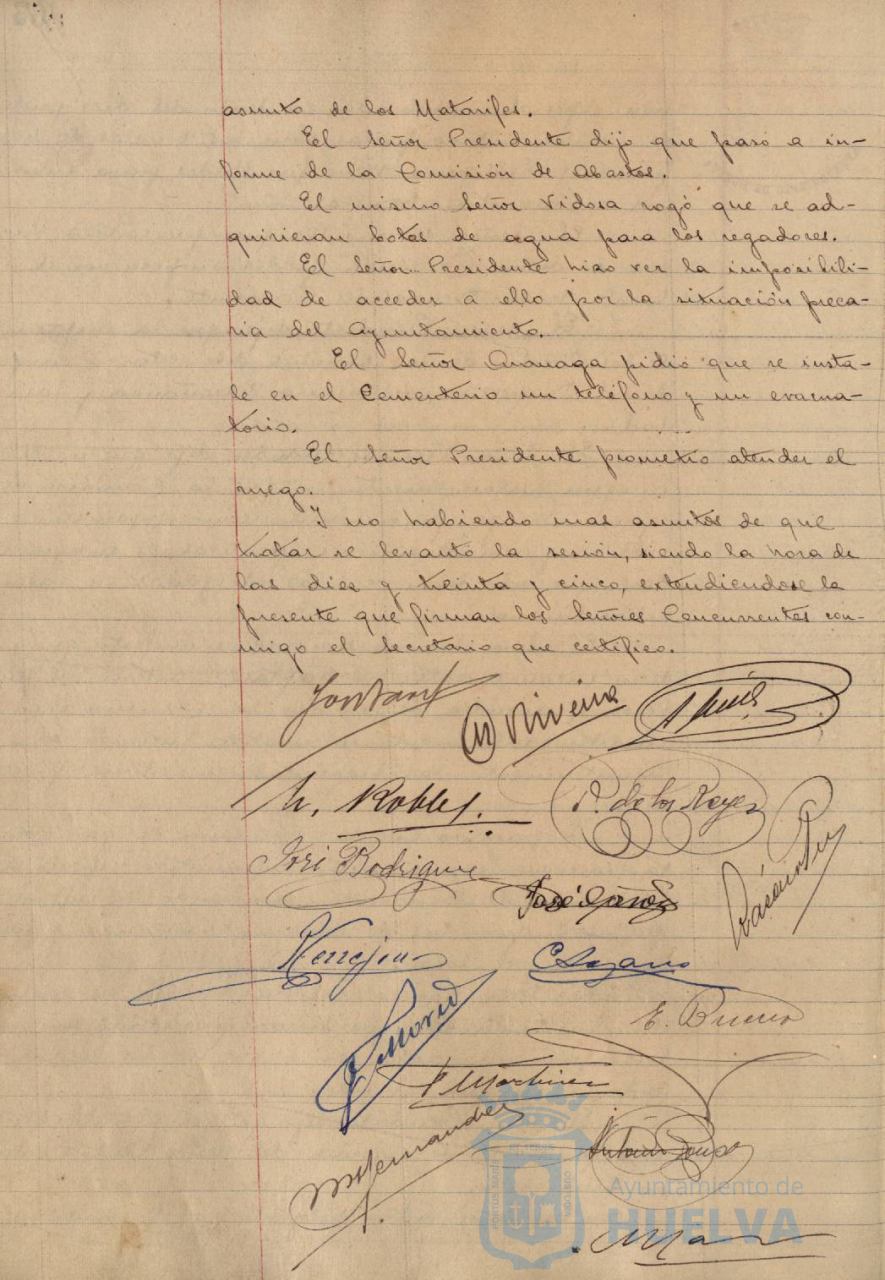 asunto de los Matarifes.
El Señor Presidente dijo que pasó a in-
forme de la Comisión de Abastos.
El mismo Señor Vidosa rogó que se ad-
quirieran botas de agua para los regadores.
El Señor Presidente hizo ver la imposibili-
dad de acceder a ello por la situación preca-
ria del Ayuntamiento.
El Señor pidió que se insta-
le en el Cementerio un teléfono y un evacua-
torio.
El Señor Presidente prometió atender el
ruego.
Y no habiendo mas asuntos de que
tratar se levantó la sesión, siendo la hora de
las diez y treinta y cinco, extendiendose la
presente que firman los Señores Concurrentes con-
migo el Secretario que certifico.
M. Robles.
P. de los Reyes
José Rodriguez
C. Lozano
E. Bueno
F. Martinez
M. Hernandez
Ayuntamiento de
HUELVA